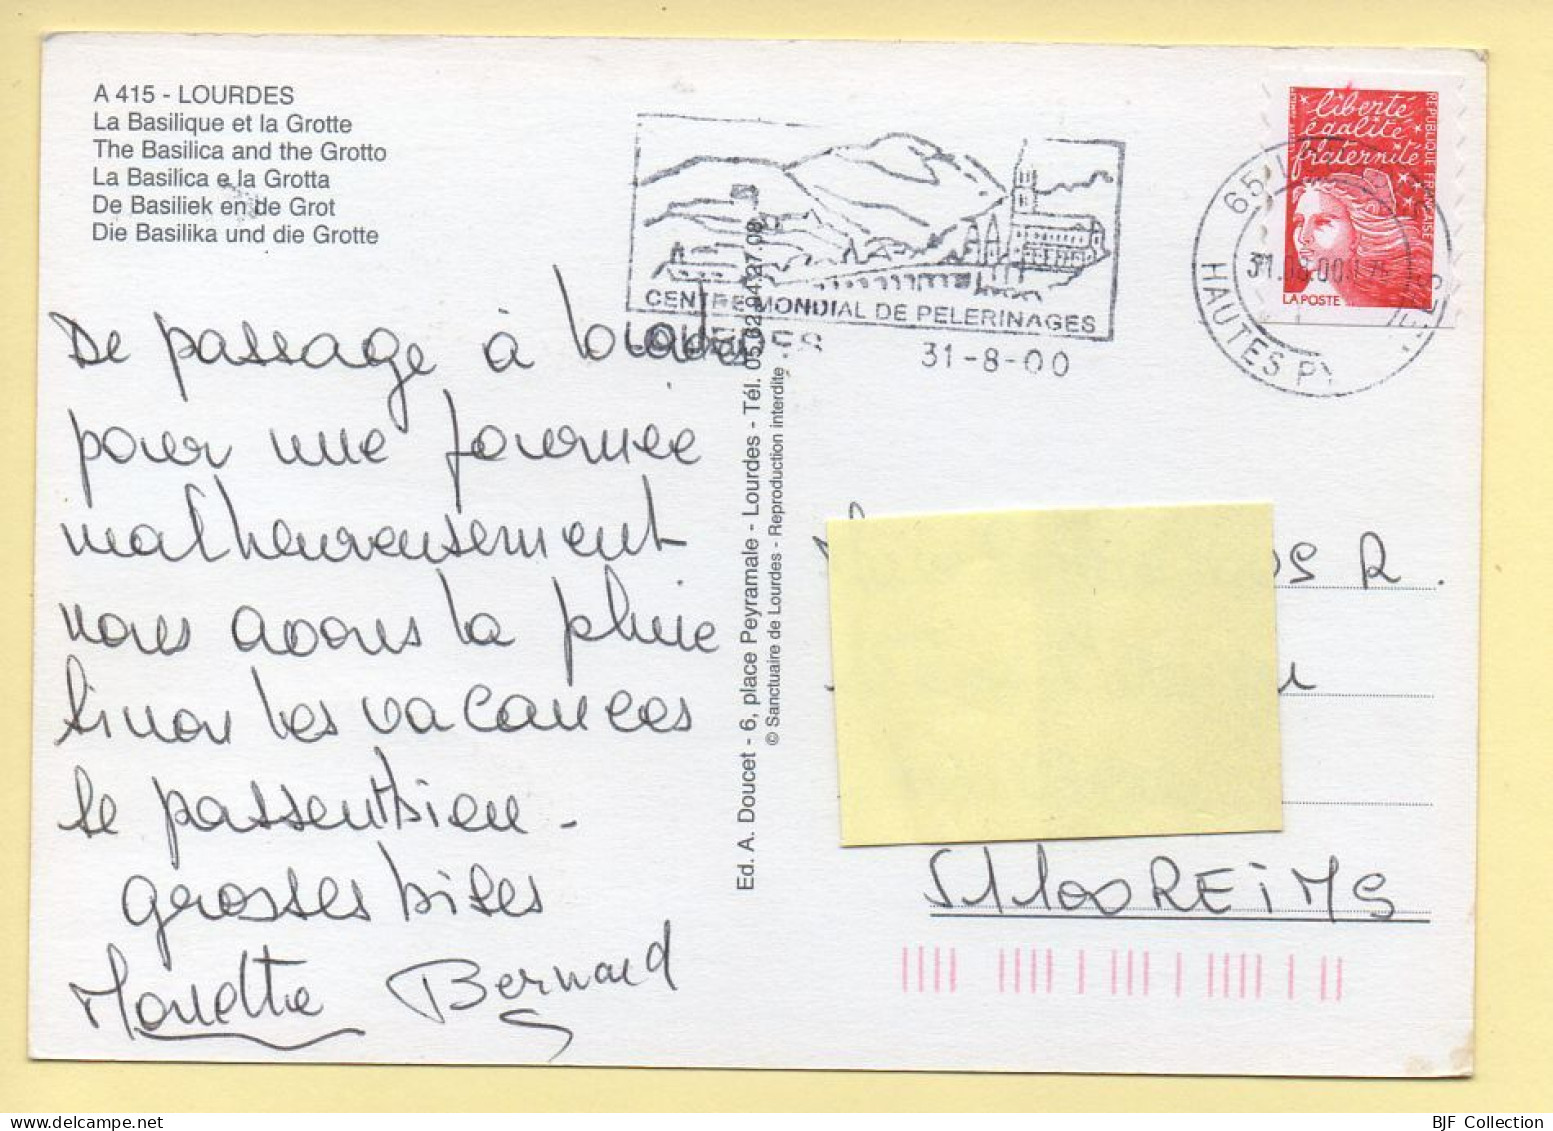 A 415 - LOURDES
La Basilique et la Grotte
The Basilica and the Grotto
La Basilica e la Grotta
De Basiliek en de Grot
Die Basilika und die Grotte
De passage à Lourdes
pour une journée
malheureusement
nous avons la pluie
sinon les vacances
se passent bien -
grosses bises
Bernard
Ed. A. Doucet - 6, place Peyramale - Lourdes - Tél. 05.62.94.27.08
© Sanctuaire de Lourdes - Reproduction interdite
CENTRE MONDIAL DE PELERINAGES
LOURDES
31-8-00
65
HAUTES PY
liberté
égalité
fraternité
REPUBLIQUE FRANÇAISE
LA POSTE
R.
51100 REIMS
BJF Collection